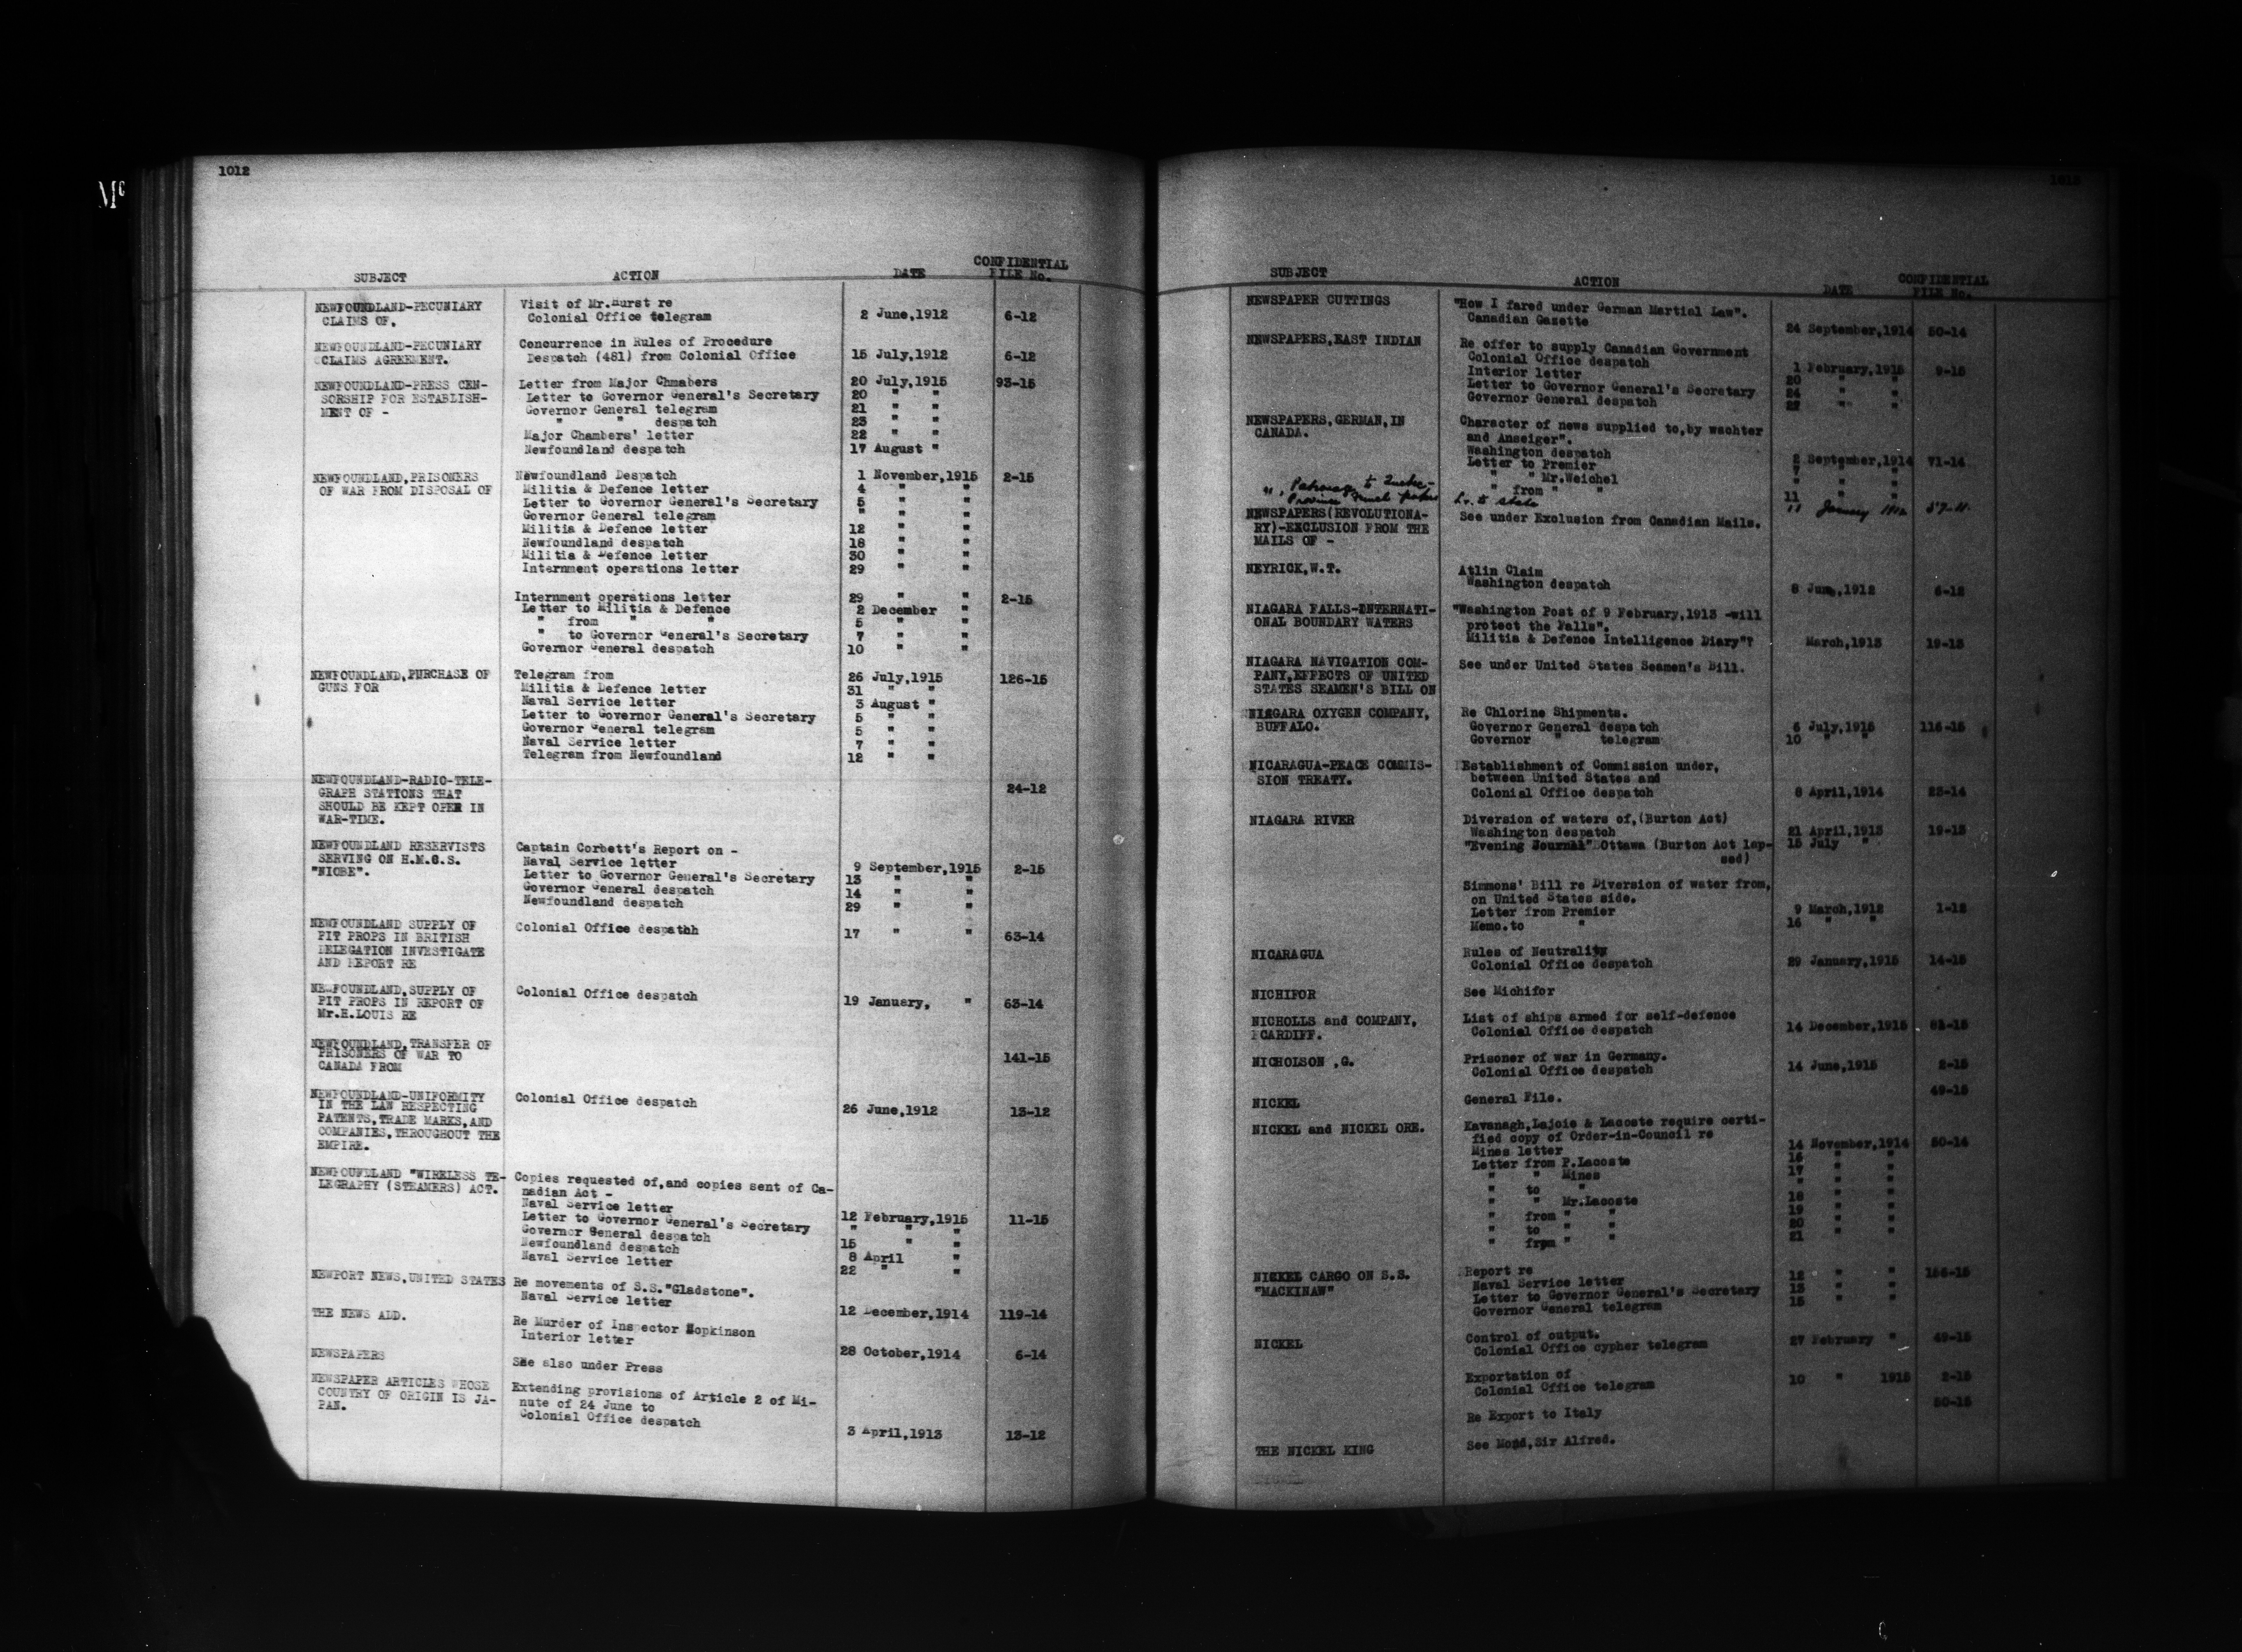 Mc
1012
SUBJECT ACTION DATE CONFIDENTIAL FILE No.
NEWFOUNDLAND-PECUNIARY Visit of Mr.Hurst re
CLAIMS OF. Colonial Office telegram 2 June,1912 6-12
NEWFOUNDLAND-PECUNIARY Concurrence in Rules of Procedure
CLAIMS AGREEMENT. Despatch (481) from Colonial Office 15 July,1912 6-12
NEWFOUNDLAND-PRESS CEN- Letter from Major Chmabers 20 July,1915 93-15
SORSHIP FOR ESTABLISH- Letter to Governor General's Secretary 20 " "
MENT OF - Governor General telegram 21 " "
" " despatch 23 " "
Major Chambers' letter 22 " "
Newfoundland despatch 17 August "
NEWFOUNDLAND,PRISONERS Newfoundland Despatch 1 November,1915 2-15
OF WAR FROM DISPOSAL OF Militia & Defence letter 4 " "
Letter to Governor General's Secretary 5 " "
Governor General telegram " " "
Militia & Defence letter 12 " "
Newfoundland despatch 18 " "
Militia & Defence letter 30 " "
Internment operations letter 29 " "
Internment operations letter 29 " " 2-15
Letter to Militia & Defence 2 December "
" from " " 5 " "
" to Governor General's Secretary 7 " "
Governor General despatch 10 " "
NEWFOUNDLAND,PURCHASE OF Telegram from 26 July,1915 126-15
GUNS FOR Militia & Defence letter 31 " "
Naval Service letter 3 August "
Letter to Governor General's Secretary 5 " "
Governor General telegram 5 " "
Naval Service letter 7 " "
Telegram from Newfoundland 12 " "
NEWFOUNDLAND-RADIO-TELE-
GRAPH STATIONS THAT 24-12
SHOULD BE KEPT OPEN IN
WAR-TIME.
NEWFOUNDLAND RESERVISTS Captain Corbett's Report on -
SERVING ON H.M.C.S. Naval Service letter 9 September,1915 2-15
"NIOBE". Letter to Governor General's Secretary 13 " "
Governor General despatch 14 " "
Newfoundland despatch 29 " "
NEWFOUNDLAND SUPPLY OF Colonial Office despathh 17 " " 63-14
PIT PROPS IN BRITISH
DELEGATION INVESTIGATE
AND REPORT RE
NEWFOUNDLAND,SUPPLY OF Colonial Office despatch 19 January, " 63-14
PIT PROPS IN REPORT OF
Mr.H.LOUIS RE
NEWFOUNDLAND,TRANSFER OF
PRISONERS OF WAR TO 141-15
CANADA FROM
NEWFOUNDLAND-UNIFORMITY Colonial Office despatch 26 June,1912 13-12
IN THE LAW RESPECTING
PATENTS,TRADE MARKS,AND
COMPANIES,THROUGHOUT THE
EMPIRE.
NEWFOUNDLAND "WIRELESS TE- Copies requested of,and copies sent of Ca-
LEGRAPHY (STEAMERS) ACT. nadian Act -
Naval Service letter 12 February,1915 11-15
Letter to Governor General's Secretary " " "
Governor General despatch 15 " "
Newfoundland despatch 8 April "
Naval Service letter 22 " "
NEWPORT NEWS,UNITED STATES Re movements of S.S."Gladstone".
Naval Service letter 12 December,1914 119-14
THE NEWS ADD. Re Murder of Inspector Hopkinson
Interior letter 28 October,1914 6-14
NEWSPAPERS See also under Press
NEWSPAPER ARTICLES WHOSE Extending provisions of Article 2 of Mi-
COUNTRY OF ORIGIN IS JA- nute of 24 June to
PAN. Colonial Office despatch 3 April,1913 13-12
1013
SUBJECT ACTION DATE CONFIDENTIAL FILE No.
NEWSPAPER CUTTINGS "How I fared under German Martial Law".
Canadian Gazette 24 September,1914 50-14
NEWSPAPERS,EAST INDIAN Re offer to supply Canadian Government
Colonial Office despatch 1 February,1915 9-15
Interior letter 20 " "
Letter to Governor General's Secretary 24 " "
Governor General despatch 27 " "
NEWSPAPERS,GERMAN,IN Character of news supplied to,by wachter
CANADA. and Anzeiger".
Washington despatch 2 September,1914 71-14
Letter to Premier 7 " "
" " Mr.Weichel " " "
" from " " 11 " "
", Patronage to Quebec Province French papers Lr. to State 11 January 1912 57-11
NEWSPAPERS(REVOLUTIONA- See under Exclusion from Canadian Mails.
RY)-EXCLUSION FROM THE
MAILS OF -
NEYRICK,W.T. Atlin Claim
Washington despatch 8 June,1912 6-12
NIAGARA FALLS-INTERNATI- "Washington Post of 9 February,1913 -will
ONAL BOUNDARY WATERS protect the Falls".
Militia & Defence Intelligence Diary"? March,1913 19-13
NIAGARA NAVIGATION COM- See under United States Seamen's Bill.
PANY,EFFECTS OF UNITED
STATES SEAMEN'S BILL ON
NIAGARA OXYGEN COMPANY, Re Chlorine Shipments.
BUFFALO. Governor General despatch 6 July,1915 116-15
Governor " telegram 10 " "
NICARAGUA-PEACE COMMIS- Establishment of Commission under,
SION TREATY. between United States and
Colonial Office despatch 8 April,1914 23-14
NIAGARA RIVER Diversion of waters of,(Burton Act)
Washington despatch 21 April,1913 19-13
"Evening Journal" Ottawa (Burton Act lap- 15 July "
sed)
Simmons' Bill re Diversion of water from,
on United States side.
Letter from Premier 9 March,1912 1-12
Memo.to " 16 " "
NICARAGUA Rules of Neutrality
Colonial Office despatch 29 January,1915 14-15
NICHIFOR See Michifor
NICHOLLS and COMPANY, List of ships armed for self-defence
CARDIFF. Colonial Office despatch 14 December,1915 81-15
NICHOLSON ,G. Prisoner of war in Germany.
Colonial Office despatch 14 June,1915 2-15
NICKEL General File. 49-15
NICKEL and NICKEL ORE. Kavanagh,Lajoie & Lacoste require certi-
fied copy of Order-in-Council re
Mines letter 14 November,1914 50-14
Letter from P.Lacoste 16 " "
" " Mines 17 " "
" to " " " "
" " Mr.Lacoste 18 " "
" from " " 19 " "
" to " " 20 " "
" from " " 21 " "
NICKEL CARGO ON S.S. Report re 12 " " 156-15
"MACKINAW" Naval Service letter 13 " "
Letter to Governor General's Secretary 15 " "
Governor General telegram
NICKEL Control of output.
Colonial Office cypher telegram 27 February " 49-15
Exportation of
Colonial Office telegram 10 " 1915 2-15
Re Export to Italy 50-15
THE NICKEL KING See Mond,Sir Alfred.